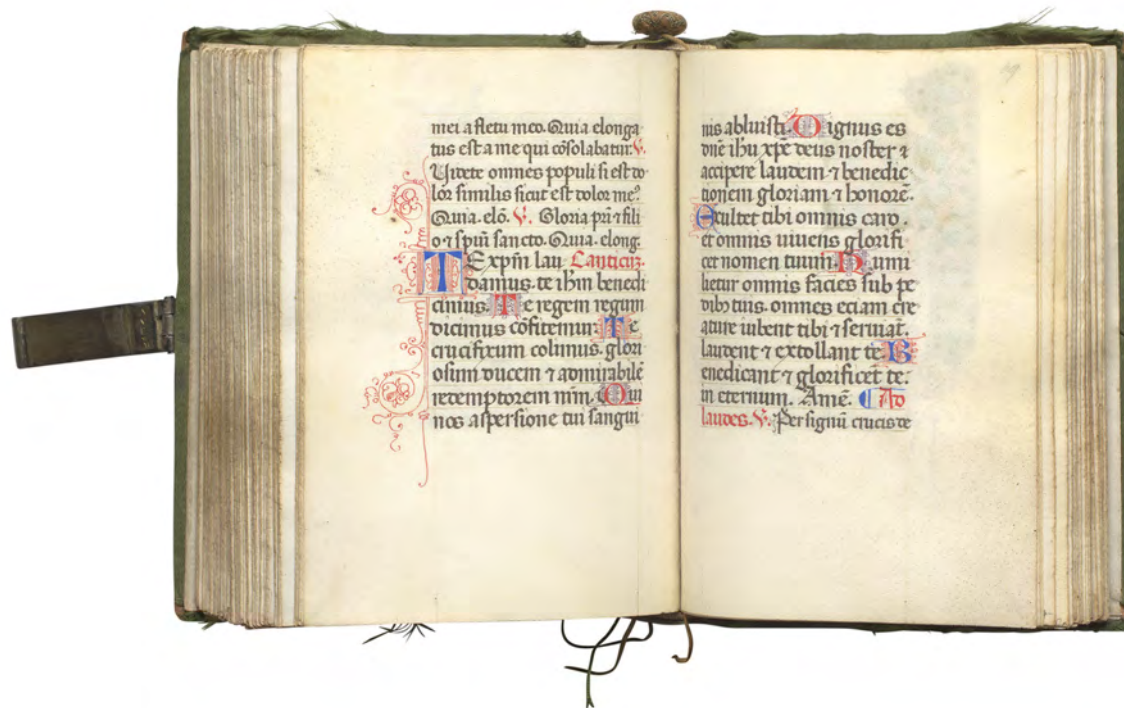 mei a fletu meo. Quia elonga
tus est a me qui cōsolabatur. V.
Videte omnes populi si est do
lor similis sicut est dolor me9
Quia. elō. V. Gloria pr̄i ⁊ fili
o ⁊ spūi sancto. Quia. elong.
TE xp̄m lau Canticum.
damus. te ihm benedi
cimus. Te regem regum
dicimus cōfitemur. Te
crucifixum colimus. glori
osum ducem ⁊ admirabilē
redemptorem nr̄m. Qui
nos aspersione tui sangui
nis abluisti. Dignus es
dn̄e ihu xp̄e deus noster ⁊
accipere laudem ⁊ benedic
tionem gloriam ⁊ honorē.
Exultet tibi omnis caro.
et omnis uiuens glorifi
cet nomen tuum. Humi
lietur omnis facies sub pe
dib3 tuis. omnes eciam cre
ature iubent tibi ⁊ seruiāt.
laudent ⁊ extollant te. B
enedicant ⁊ glorificet te.
in eternum. Amē. Ad
laudes. V. Per signū crucis de